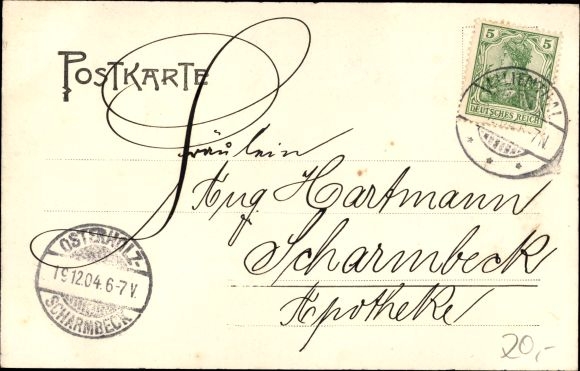 POSTKARTE
5 5
DEUTSCHES REICH
LILIENTHAL
7-N
Fräulein
Aug. Hartmann
Scharmbeck
Apotheke
OSTERHOLZ-
19.12.04. 6-7 V.
SCHARMBECK
20,-